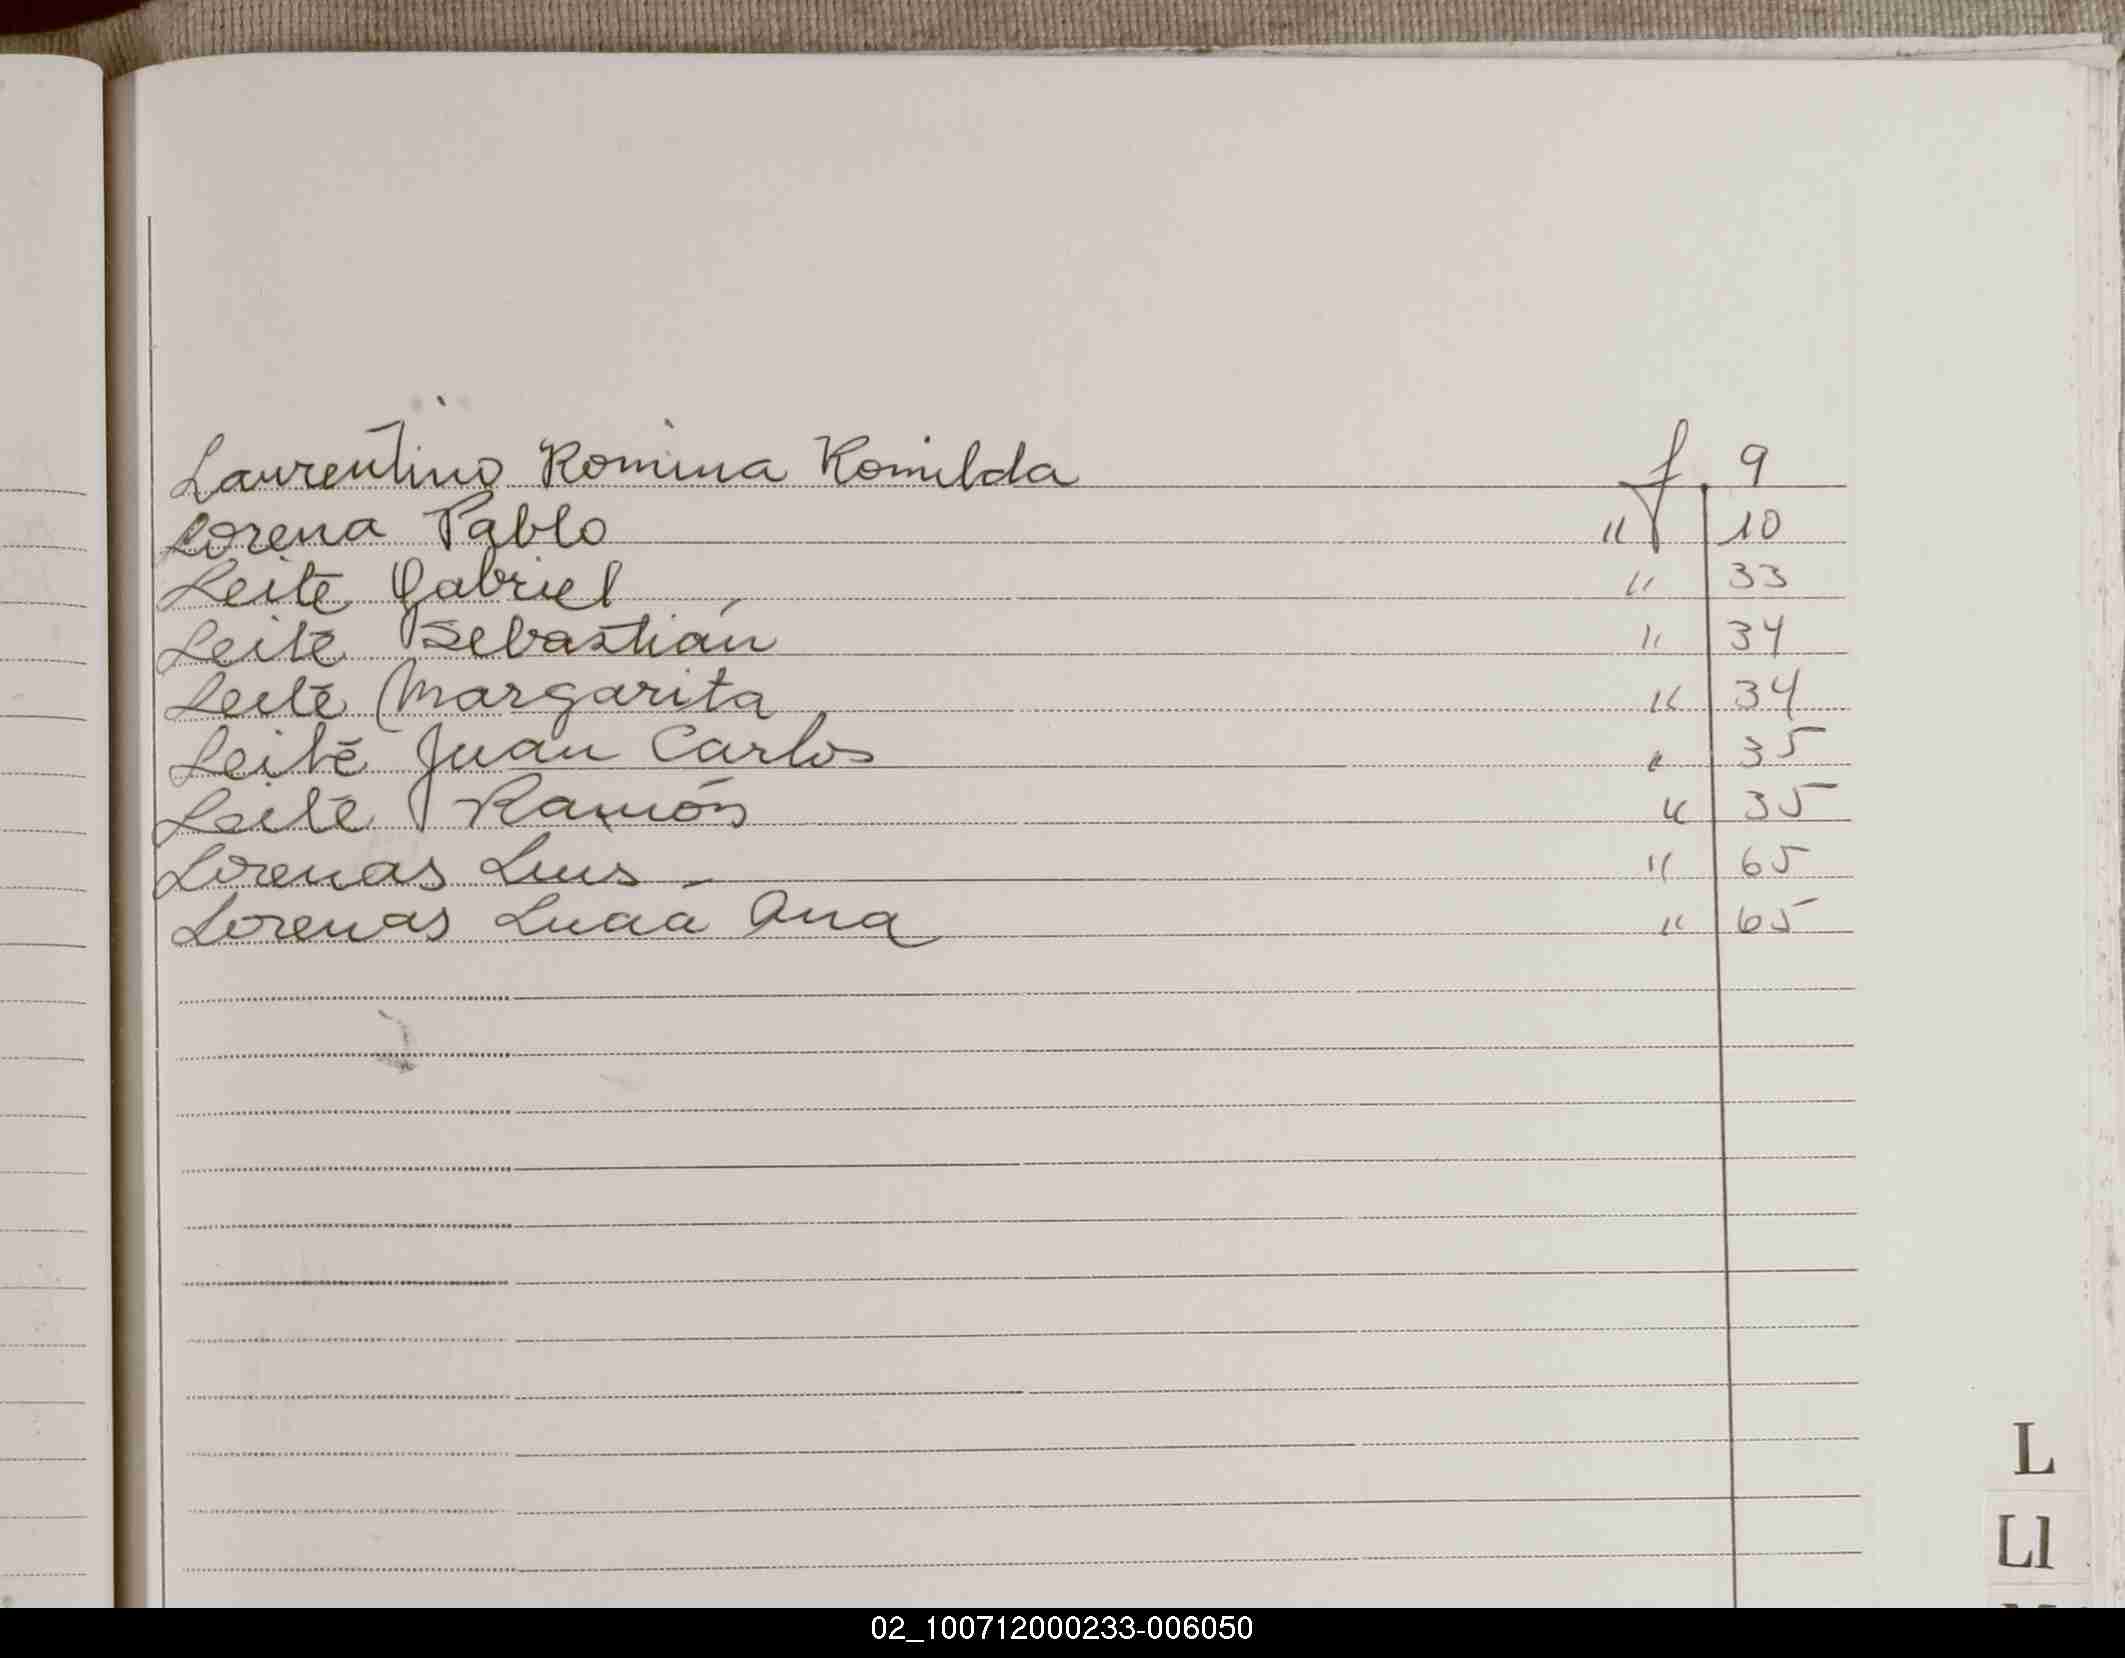 Laurentino Romina Romilda f. 9
Lorena Pablo " 10
Leite Gabriel " 33
Leite Sebastián " 34
Leite Margarita " 34
Leite Juan Carlos " 35
Leite Ramón " 35
Lorenas Luis " 65
Lorenas Ana " 65
L
Ll
02_100712000233-006050